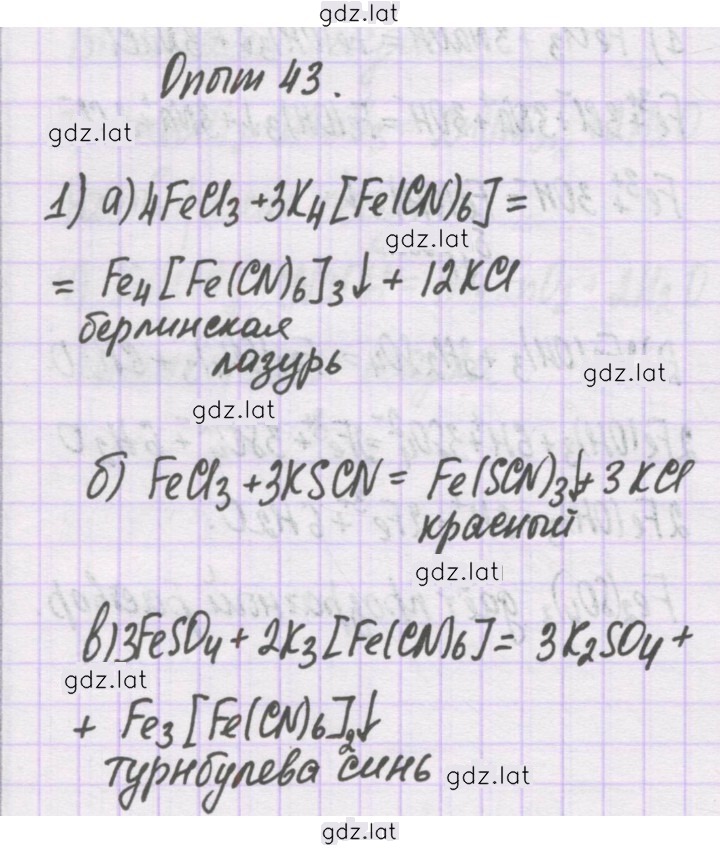 gdz.lat
Опыт 43.
gdz.lat
1) а) 4FeCl₃ + 3K₄[Fe(CN)₆] =
gdz.lat
= Fe₄[Fe(CN)₆]₃↓ + 12KCl
берлинская
лазурь
gdz.lat
gdz.lat
б) FeCl₃ + 3KSCN = Fe(SCN)₃↓ + 3KCl
красный
gdz.lat
в) 3FeSO₄ + 2K₃[Fe(CN)₆] = 3K₂SO₄ +
gdz.lat
+ Fe₃[Fe(CN)₆]₂↓
турнбулева синь
gdz.lat
gdz.lat